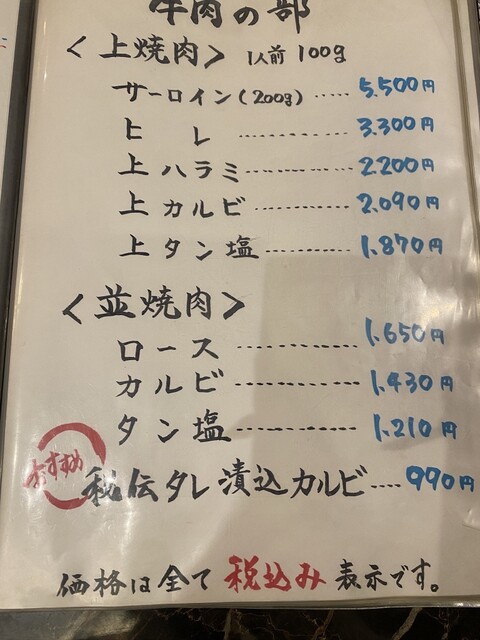 牛肉の部
＜上焼肉＞ 1人前 100g
サーロイン(200g) ..... 5,500円
ヒレ ............... 3,300円
上ハラミ ............... 2,200円
上カルビ ............. 2,090円
上タン塩 ............ 1,870円
＜並焼肉＞
ロース ............... 1,650円
カルビ ............... 1,430円
タン塩 ............... 1,210円
おすすめ
秘伝タレ漬込カルビ .... 990円
価格は全て税込み表示です。